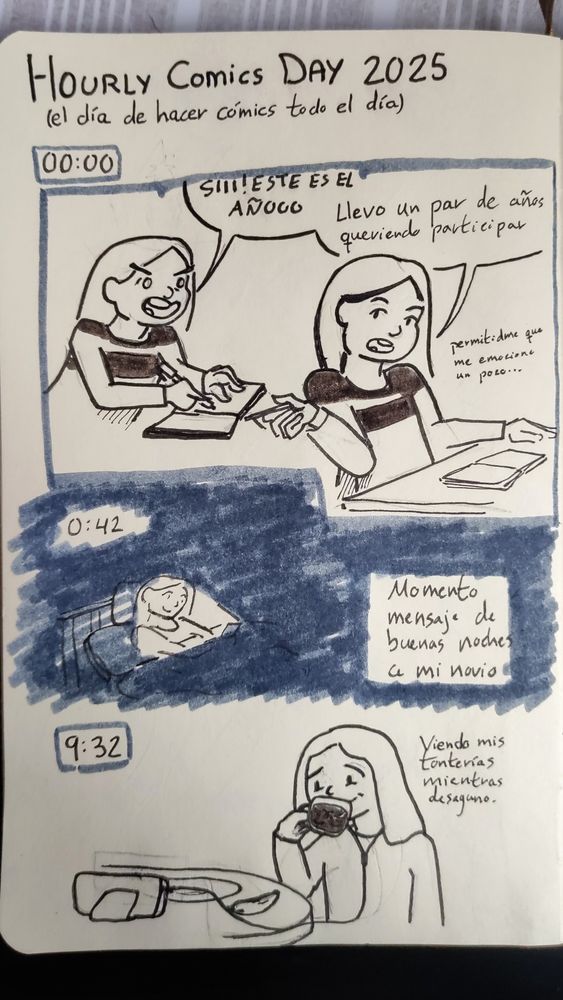 HOURLY COMICS DAY 2025
(el día de hacer cómics todo el día)
00:00
SIIII! ESTE ES EL
AÑOOO
Llevo un par de años
queriendo participar
permitidme que
me emocione
un poco...
0:42
Momento
mensaje de
buenas noches
a mi novio
9:32
Viendo mis
tonterías
mientras
desayuno.